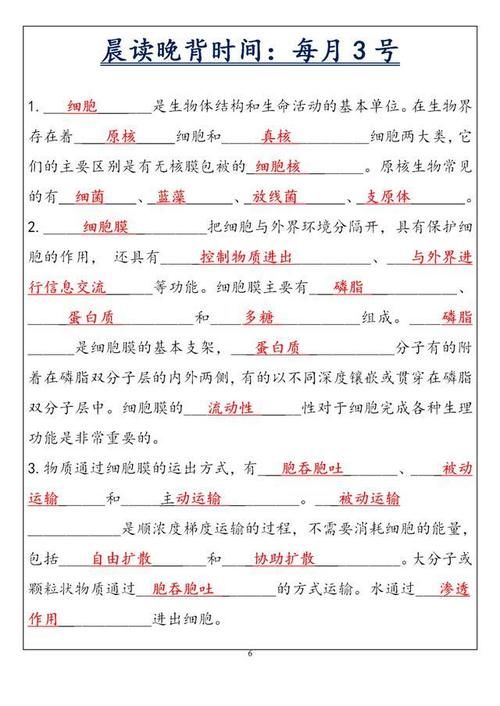 晨读晚背时间：每月3号
1.__细胞______是生物体结构和生命活动的基本单位。在生物界
存在着___原核____细胞和____真核________细胞两大类，它
们的主要区别是有无核膜包被的_细胞核___。原核生物常见
的有__细菌___、__蓝藻____、__放线菌___、__支原体_____。
2.____细胞膜_______把细胞与外界环境分隔开，具有保护细
胞的作用， 还具有____控制物质进出________、___与外界进
行信息交流_____等功能。细胞膜主要有__磷脂________、
____蛋白质_______和__多糖________组成。__磷脂
______是细胞膜的基本支架，__蛋白质________分子有的附
着在磷脂双分子层的内外两侧，有的以不同深度镶嵌或贯穿在磷脂
双分子层中。细胞膜的__流动性___性对于细胞完成各种生理
功能是非常重要的。
3.物质通过细胞膜的运出方式，有__胞吞胞吐_____、____被动
运输____和____主动运输____。__被动运输
_________是顺浓度梯度运输的过程，不需要消耗细胞的能量，
包括___自由扩散_____和___协助扩散_______。大分子或
颗粒状物质通过__胞吞胞吐______的方式运输。水通过__渗透
作用_________进出细胞。
6